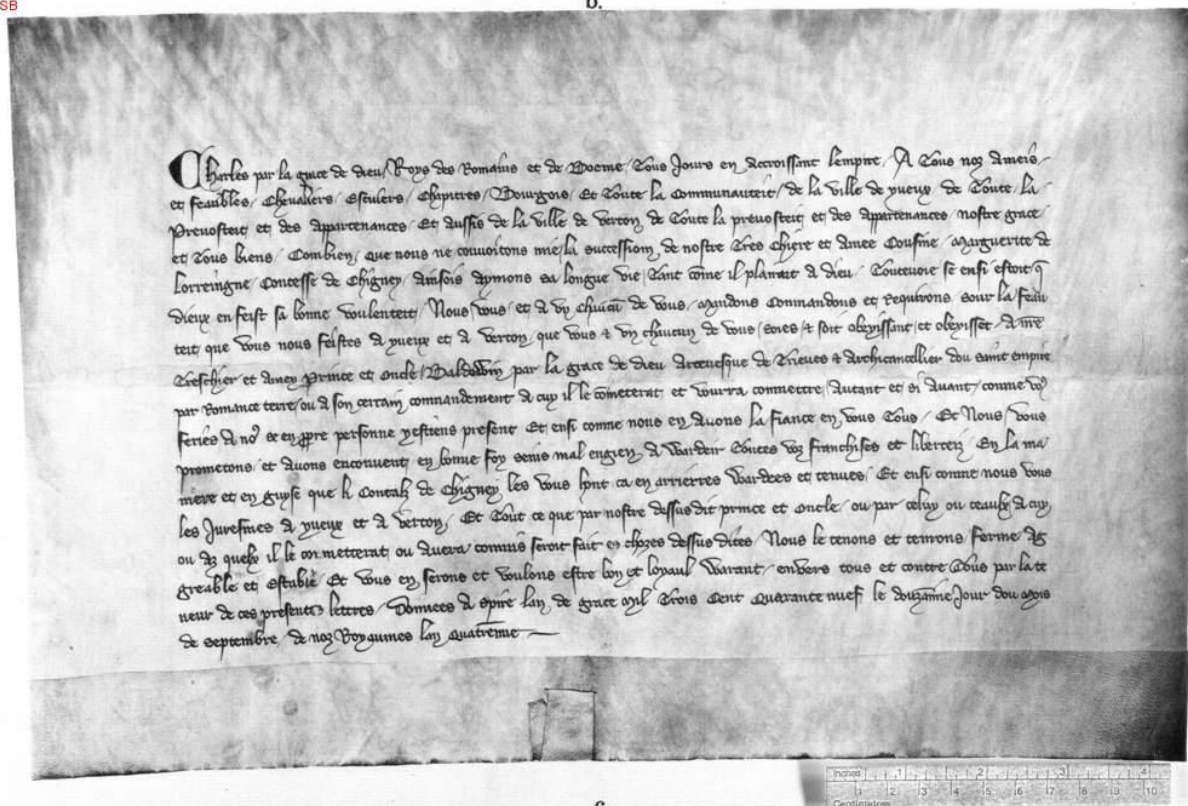 SB
b.
Charles par la grace de dieu / Roys des Romains et de Boeme / Tous Jours en accroissant lempire / A Tous noz ameis /
et feaubles / Chevaliers / escuiers / Chapitres / Bourgois / Et Toute la Communauteit / de la ville de yueux / de Toute / la
Prevosteit et des appartenances / Et aussis de la ville de verton de Toute la prevosteit et des appartenances / nostre grace /
et Tous biens / Combien / que nous ne couvoitons mie la succession de nostre Tres chiere et amee Cousine / Marguerite de
Lorreingne / Contesse de Chigney / ainsois aymons sa longue vie / Tant come il plairait a dieu / Toutevoie se ensi estoit q
dieux en feist sa bonne voulenteit / Nous vous / et a vn chascu de vous / Mandons Commandons et Requirons sour la feau
teit que vous nous feistes a yueux et a verton / que vous & vn chaucun de vous / soies & soit obeyssant / et obeysset / A nre
Treschier et amey Prince et oncle / Baldewin par la grace de dieu Arcevesque de Trieves & Archicancellier dou saint empire
par Romance terre / ou a son certain commandement a cuy il le cometterat et vourra commettre / autant et si avant / comme vo9
feries a no9 se en ppre personne yestiens present Et ensi comme nous en avons la fiance en vous Tous / Et Nous / vous
prometons / et avons enconvent / en bonne foy senis mal engien / a Warder Toutes voz franchises et liberteiz / En la ma
niere et en guyse que li Contalz de Chigney les vous hont ca en arrieres Wardees et tenues / Et ensi comme nous vous
les Juresmes a yueux et a verton / Et Tout ce que par nostre dessusdit prince et oncle / ou par celuy ou ceaulz a cuy
ou az quelz il le commetterat ou avera commis seroit fait en chozes dessus dites / Nous le tenons et tenrons ferme Ag
greable et estable / Et vous en serons et voulons estre bon et loyaul Warant / envers tous et contre Tous par la te
neur de ces presentes lettres / Donnees a Spire / lan de grace Mil Trois Cent Quarante nuef le douzanne Jour dou Mois
de septembre / de noz Royaumes lan Quatreme
Inches 1 2 3 4
1 2 3 4 5 6 7 8 9 10
Centimetres
c.